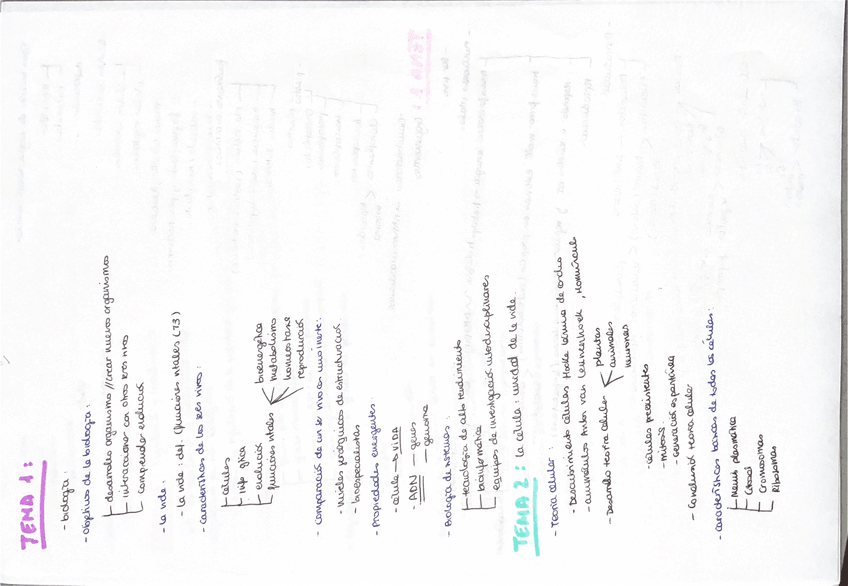 TEMA 1:
- biología:
- Objetivos de la biología:
desarrollo organismo // crear nuevos organismos
interaccionar con otros seres vivos
comprender evolución
- la vida:
- la vida: def. funciones vitales (T3)
- Características de los seres vivos:
células
info gtca
evolución
funciones vitales
bioenergética
metabolismo
homeostasis
reproducción
- Comparación de un ser vivo con uno inerte:
- Niveles jerárquicos de estructuración
- bioespecialistas
- Propiedades emergentes
- célula → VIDA
- ADN - genes
- genoma
- Biología de sistemas:
tecnología de alto rendimiento
bioinformática
equipos de investigación interdisciplinares
TEMA 2: la célula: unidad de la vida.
- Teoría celular:
- Descubrimiento células Hooke lámina de corcho
- aumentos Anton van Leeuwenhoek, Homúnculo
- Desarrollo teoría celular
plantas
animales
neuronas
- células preexistentes
- mitosis
- Generación espontánea
- Conclusión teoría celular
- Características básicas de todas las células:
Memb plasmática
Citosol
Cromosomas
Ribosomas